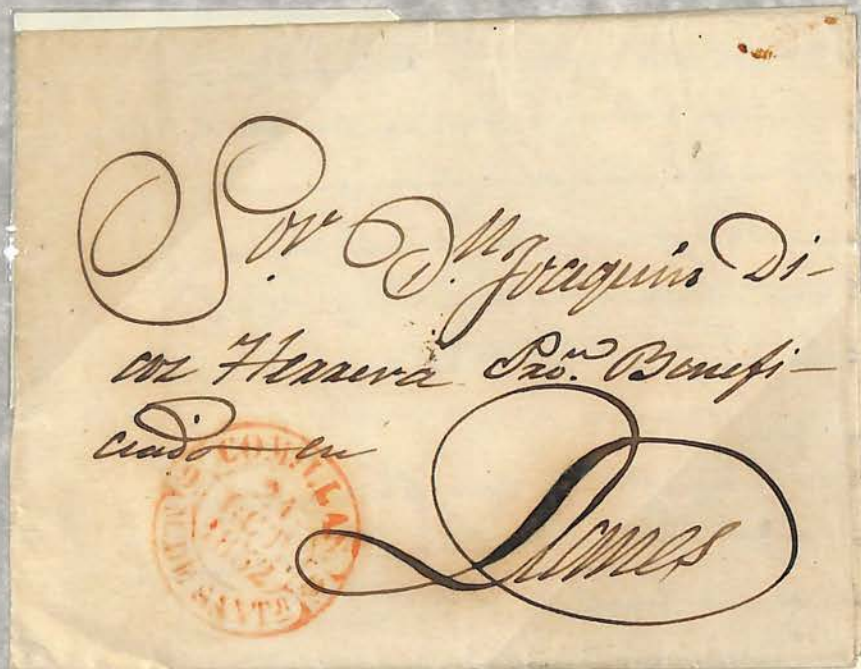 Sor. D.n Joaquin Di-
caz Herrera Benefi-
ciado en
Llanes
COMILLAS
24
1852